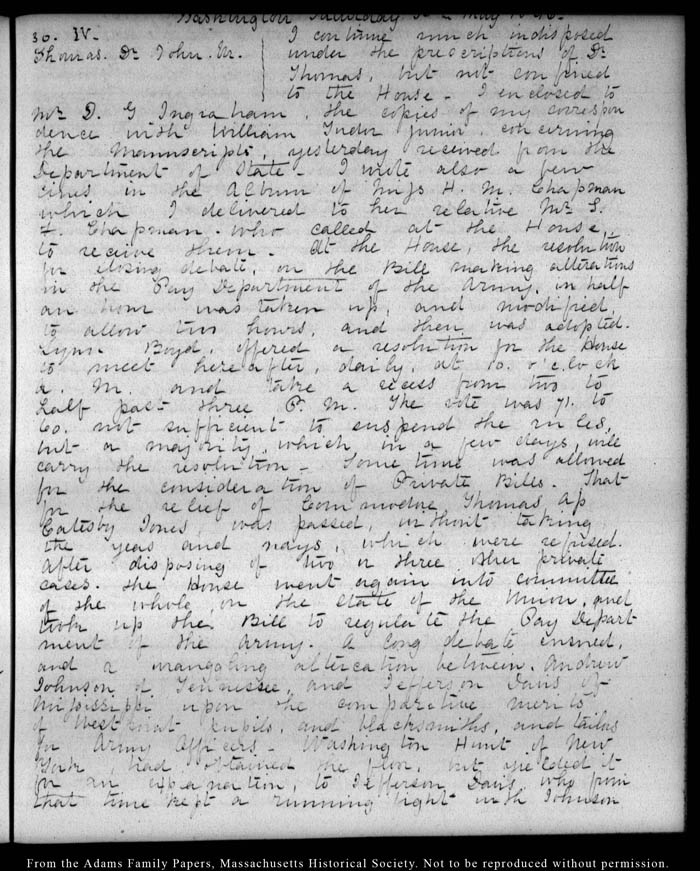 Washington Saturday 30. May 1846.
30. IV.
Thomas. Dr John. M.
I continue much indisposed
under the prescriptions of Dr
Thomas, but not confined
to the House - I enclosed to
Mr D. G Ingraham, the copies of my correspon
dence with William Tudor junior. concerning
the Manuscripts, yesterday received from the
Department of State - I wrote also a few
lines in the Album of Miss H. M. Chapman
which I delivered to her relative Mr S.
Chapman. who called at the House,
to receive them. At the House, the resolution
for closing debate, on the Bill making alterations
in the Pay Department of the Army, in half
an hour was taken up, and modified,
to allow two hours, and then was adopted.
Lynn Boyd, offered a resolution for the House
to meet hereafter, daily, at 10. o'clock
A. M. and take a recess from two to
half past three P. M. The vote was 71. to
60. not sufficient to suspend the rules,
but a majority, which in a few days, will
carry the resolution - Some time was allowed
for the consideration of Private Bills. That
for the relief of Commodore Thomas Ap
Catesby Jones, was passed, without taking
the yeas and nays, which were refused.
After disposing of two or three other private
cases. the House went again into committee
of the whole, on the state of the Union, and
took up the Bill to regulate the Pay Depart
ment of the Army. A long debate ensued,
and a wrangling altercation between. Andrew
Johnson of Tennessee, and Jefferson Davis of
Mississippi upon the comparative merits
of West Point pupils, and blacksmiths, and tailors
for Army Officers - Washington Hunt of New
York, had obtained the floor, but yielded it
for an explanation, to Jefferson Davis, who from
that time kept a running fight with Johnson
From the Adams Family Papers, Massachusetts Historical Society. Not to be reproduced without permission.